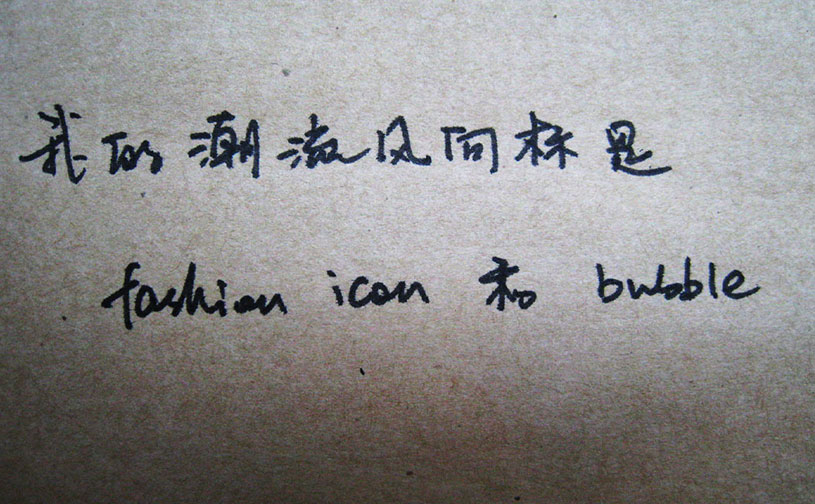 我的潮流风向标是
fashion icon 和 bubble